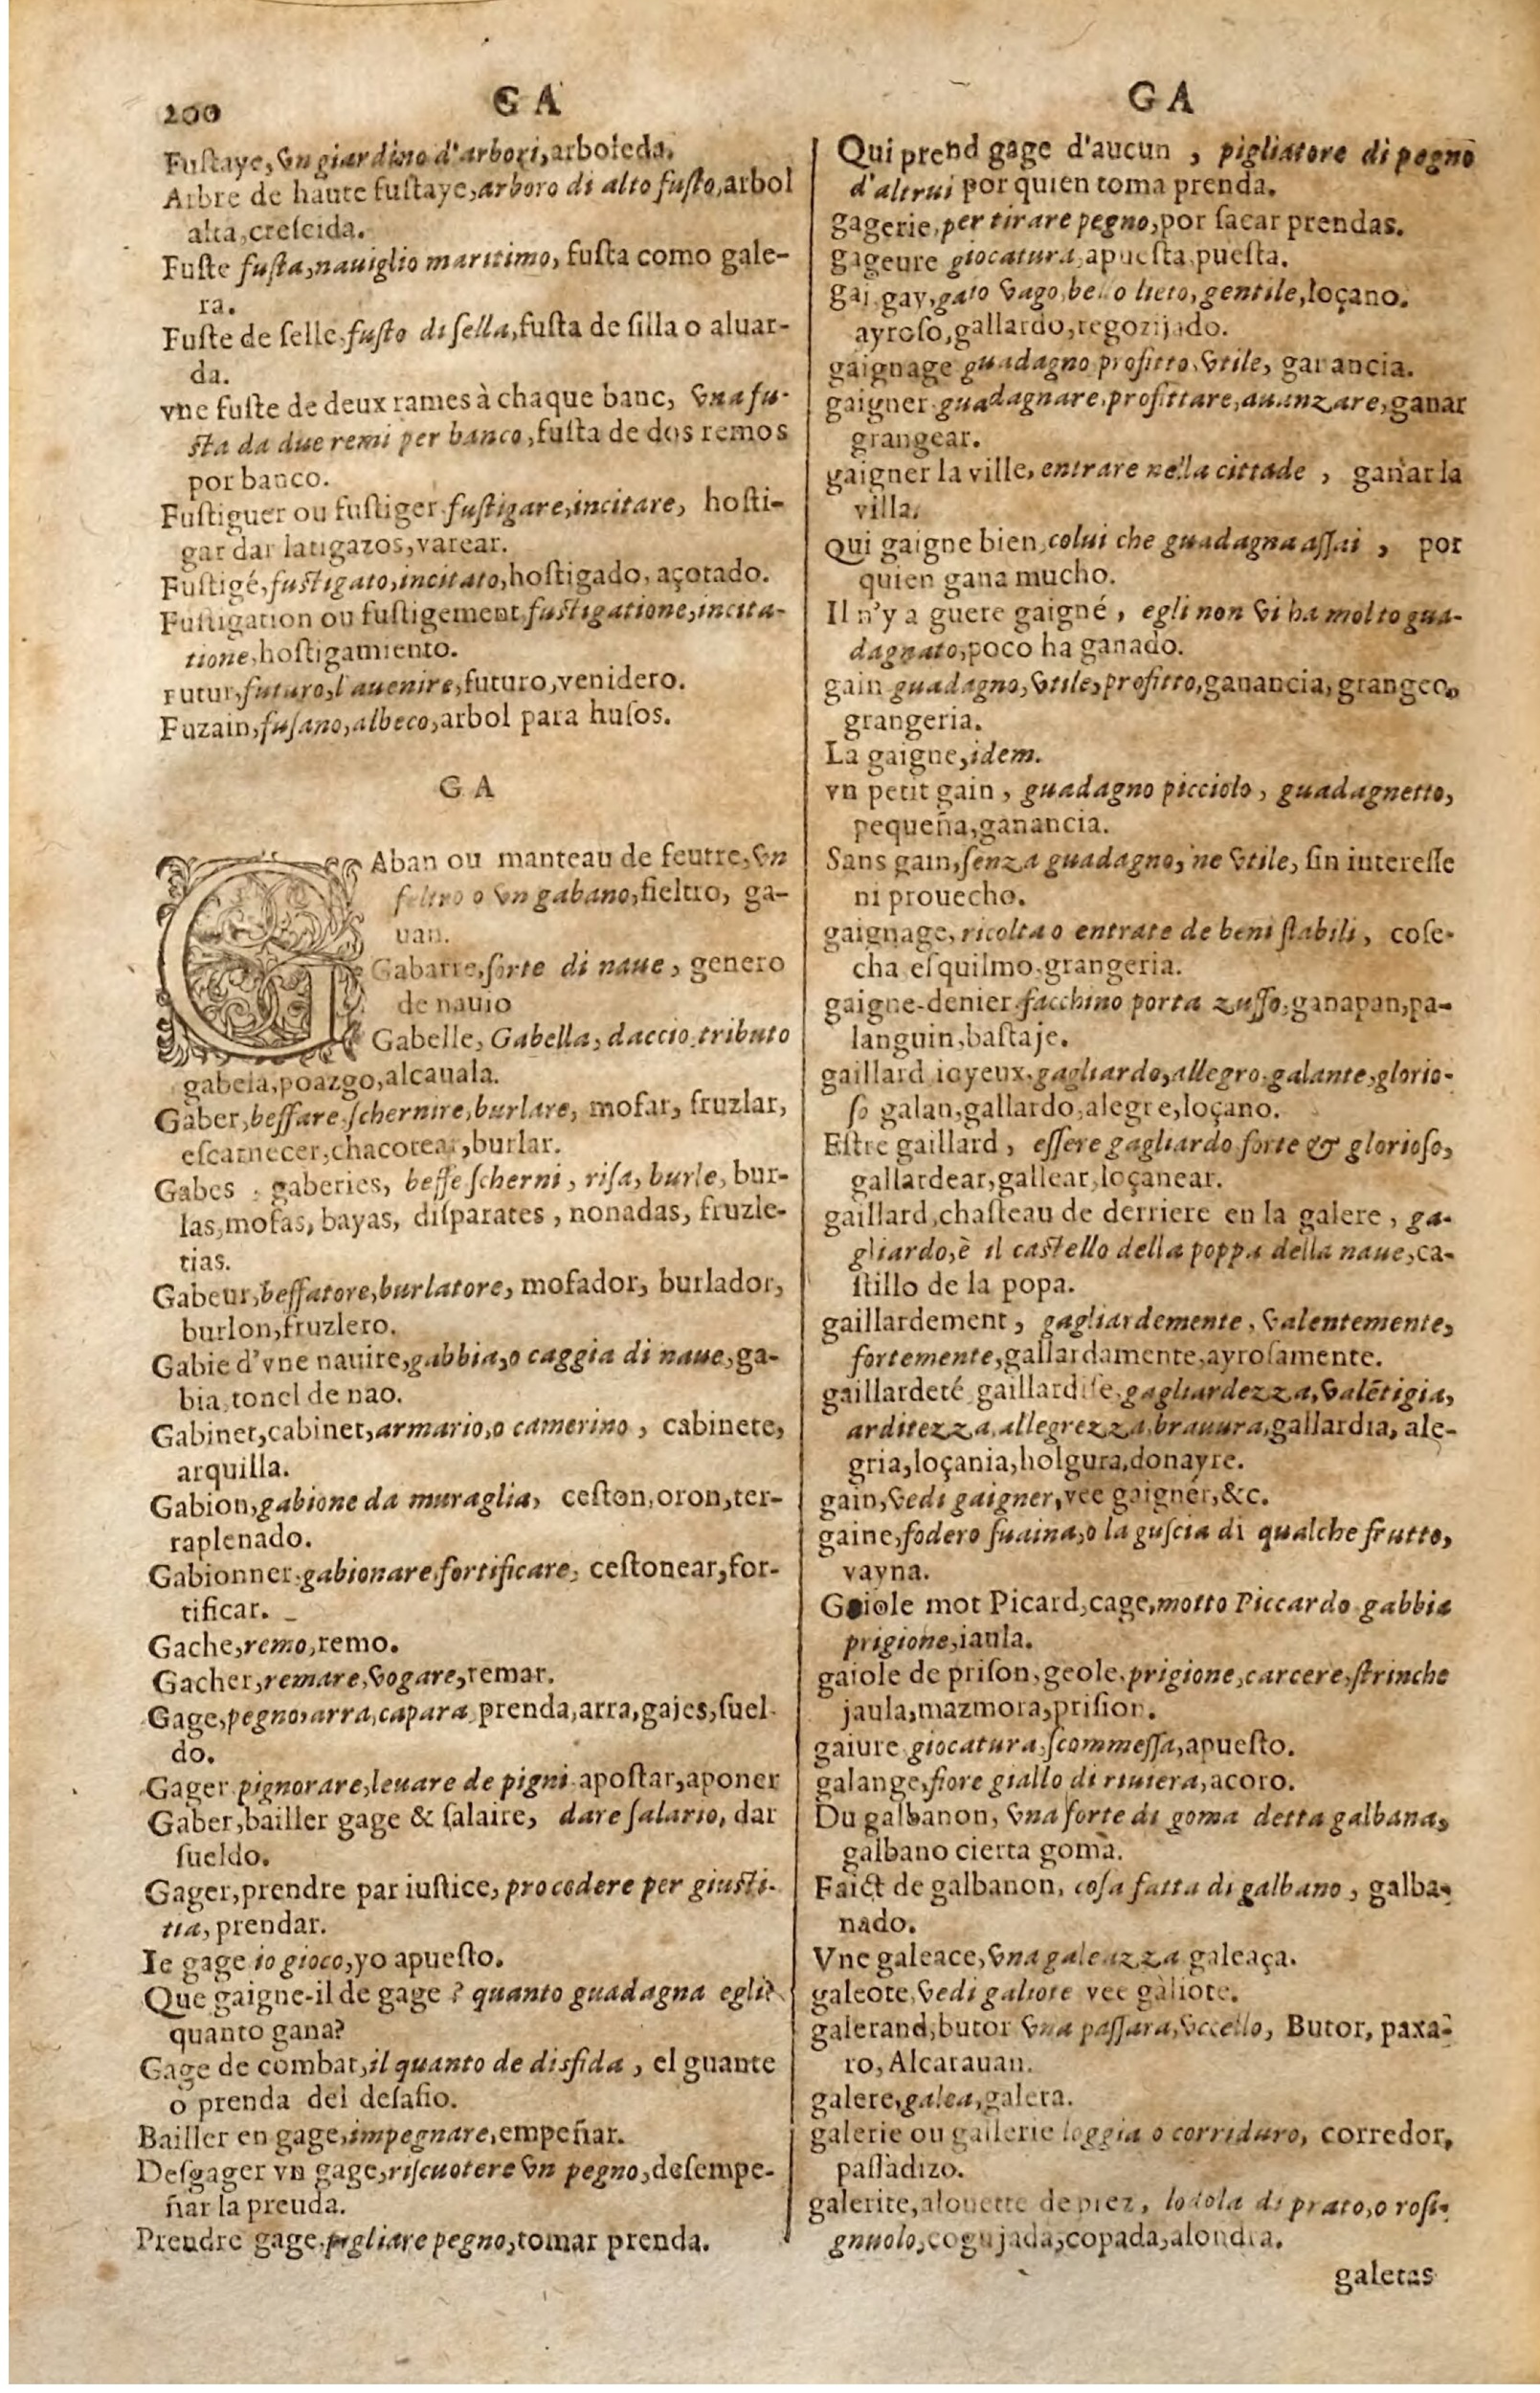 200
G A
G A
Fuſtaye, vn giardino d'arbori, arboleda.
Arbre de haute fuſtaye, arboro di alto fuſto, arbol
alta, creſcida.
Fuſte fuſta, nauiglio maritimo, fuſta como gale-
ra.
Fuſte de ſelle. fuſto di ſella, fuſta de ſilla o aluar-
da.
vne fuſte de deux rames à chaque banc, vna fu-
ſta da due remi per banco, fuſta de dos remos
por banco.
Fuſtiguer ou fuſtiger. fuſtigare, incitare, hoſti-
gar dar latigazos, varear.
Fuſtigé, fuſtigato, incitato, hoſtigado, açotado.
Fuſtigation ou fuſtigement, fuſtigatione, incita-
tione, hoſtigamiento.
Futur, futuro, l'auenire, futuro, venidero.
Fuzain, fuſano, albeco, arbol para huſos.
G A
GAban ou manteau de feutre, vn
feltro o vn gabano, fieltro, ga-
uan.
Gabarre, ſorte di naue, genero
de nauio
Gabelle, Gabella, daccio, tributo
gabela, poazgo, alcauala.
Gaber, beffare. ſchernire, burlare, mofar, fruzlar,
eſcarnecer, chacotear, burlar.
Gabes, gaberies, beffe ſcherni, riſa, burle, bur-
las, mofas, bayas, diſparates, nonadas, fruzle-
tias.
Gabeur, beffatore, burlatore, mofador, burlador,
burlon, fruzlero.
Gabie d'vne nauire, gabbia, o caggia di naue, ga-
bia, tonel de nao.
Gabinet, cabinet, armario, o camerino, cabinete,
arquilla.
Gabion, gabione da muraglia, ceſton, oron, ter-
raplenado.
Gabionner. gabionare, fortificare, ceſtonear, for-
tificar.
Gache, remo, remo.
Gacher, remare, vogare, remar.
Gage, pegno, arra, capara, prenda, arra, gajes, ſuel-
do.
Gager pignorare, leuare de pigni. apoſtar, aponer
Gaber, bailler gage & ſalaire, dare ſalario, dar
ſueldo.
Gager, prendre par iuſtice, procedere per giuſti-
tia, prendar.
Ie gage io gioco, yo apueſto.
Que gaigne-il de gage? quanto guadagna egli?
quanto gana?
Gage de combat, il quanto de disfida, el guante
o prenda del deſafio.
Bailler en gage, impegnare, empeñar.
Deſgager vn gage, riſcuotere vn pegno, deſempe-
ñar la preuda.
Prendre gage. pigliare pegno, tomar prenda.
Qui prend gage d'aucun, pigliatore di pegno
d'altrui por quien toma prenda.
gagerie, per tirare pegno, por ſacar prendas.
gageure giocatura, apueſta, pueſta.
gai, gay, gaio vago, bello lieto, gentile, loçano.
ayroſo, gallardo, regozijado.
gaignage guadagno profitto, vtile, ganancia.
gaigner. guadagnare, profittare, auanzare, ganar
grangear.
gaigner la ville, entrare nella cittade, ganar la
villa.
Qui gaigne bien, colui che guadagna aſſai, por
quien gana mucho.
Il n'y a guere gaigné, egli non vi ha molto gua-
dagnato, poco ha ganado.
gain guadagno, vtile, profitto, ganancia, grangeo,
grangeria.
La gaigne, idem.
vn petit gain, guadagno picciolo, guadagnetto,
pequeña, ganancia.
Sans gain, ſenza guadagno, ne vtile, ſin intereſſe
ni prouecho.
gaignage, ricolta o entrate de beni ſtabili, coſe-
cha eſquilmo, grangeria.
gaigne-denier. facchino porta zuſſo, ganapan, pa-
languin, baſtaje.
gaillard ioyeux. gagliardo, allegro, galante, glorio-
ſo galan, gallardo, alegre, loçano.
Eſtre gaillard, eſſere gagliardo forte & glorioſo,
gallardear, gallear, loçanear.
gaillard, chaſteau de derriere en la galere, ga-
gliardo, è il caſtello della poppa della naue, ca-
ſtillo de la popa.
gaillardement, gagliardemente, valentemente,
fortemente, gallardamente, ayroſamente.
gaillardeté gaillardiſe, gagliardezza, valẽtigia,
arditezza, allegrezza, brauura, gallardia, ale-
gria, loçania, holgura, donayre.
gain, vedi gaigner, vee gaigner, &c.
gaine, fodero ſuaina, o la guſcia di qualche frutto,
vayna.
Gaiole mot Picard, cage, motto Piccardo gabbia
prigione, iaula.
gaiole de priſon, geole, prigione, carcere, ſtrinche
jaula, mazmora, priſion.
gaiure giocatura, ſcommeſſa, apueſto.
galange, fiore giallo di riuiera, acoro.
Du galbanon, vna ſorte di goma detta galbana,
galbano cierta goma.
Faict de galbanon, coſa fatta di galbano, galba-
nado.
Vne galeace, vna galeazza galeaça.
galeote, vedi galiote vee galiote.
galerand, butor vna paſſara, vccello, Butor, paxa-
ro, Alcarauan.
galere, galea, galera.
galerie ou gallerie loggia o corriduro, corredor,
paſſadizo.
galerite, alouette de prez, lodola di prato, o roſi-
gnuolo, cogujada, copada, alondra.
galetas